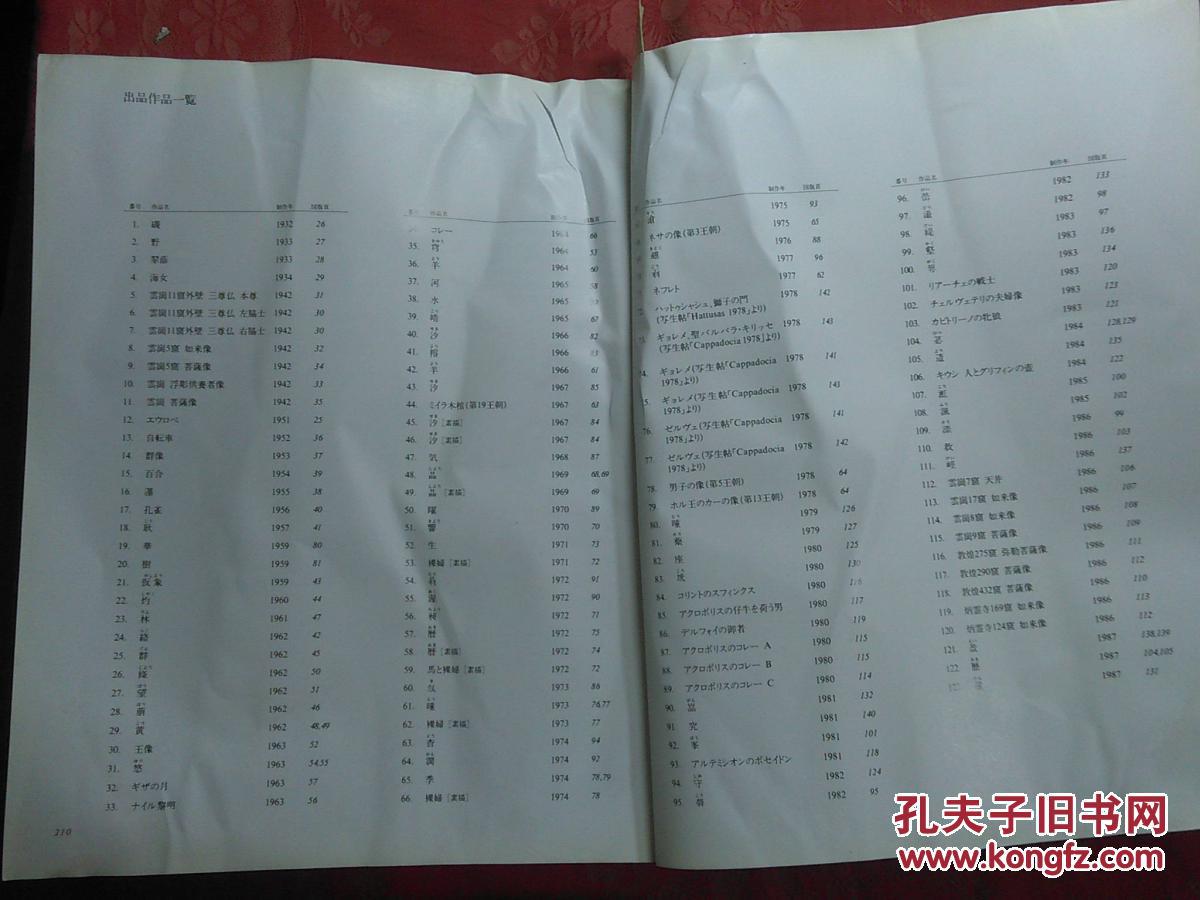 出品作品一覧
番号 作品名 制作年 図版頁
1. 磯 1932 26
2. 野 1933 27
3. 1933 28
4. 海女 1934 29
5. 雲崗11窟外壁 三尊仏 本尊 1942 31
6. 雲崗11窟外壁 三尊仏 左脇士 1942 30
7. 雲崗11窟外壁 三尊仏 右脇士 1942 30
8. 雲崗5窟 如来像 1942 32
9. 雲崗5窟 菩薩像 1942 34
10. 雲崗 浮彫供養者像 1942 33
11. 雲崗 菩薩像 1942 35
12. エウロペ 1951 25
13. 自転車 1952 36
14. 群像 1953 37
15. 百合 1954 39
16. 瀑 1955 38
17. 孔雀 1956 40
18. 耿 1957 41
19. 華 1959 80
20. 樹 1959 81
21. 仮象 1959 43
22. 灼 1960 44
23. 林 1961 47
24. 1962 42
25. 群 1962 45
26. 1962 50
27. 望 1962 51
28. 萌 1962 46
29. 黄 1962 48,49
30. 王像 1963 52
31. 悠 1963 54,55
32. ギザの月 1963 57
33. ナイル黎明 1963 56
210
番号 作品名 制作年 図版頁
コレー 66
35. 穹 1964 53
36. 羊 1964 60
37. 河 1965 58
38. 水 1965
39. 晧 1965 67
40. 汐 1966 82
41. 榕 1966
42. 羊 1966 61
43. 汐 1967 85
44. ミイラ木棺(第19王朝) 1967 63
45. 汐[素描] 1967 84
46. 汐[素描] 1967 84
47. 気 1968 87
48. 晶 1969 68,69
49. 晶[素描] 1969 69
50. 曜 1970 89
51. 響 1970 70
52. 生 1971 73
53. 裸婦[素描] 1971 72
54. 1972 91
55. 渥 1972 90
56. 1972 71
57. 暦 1972 75
58. 暦[素描] 1972 74
59. 馬と裸婦[素描] 1972 72
60. 1973 86
61. 曈 1973 76,77
62. 裸婦[素描] 1973 77
63. 杳 1974 94
64. 潤 1974 92
65. 季 1974 78,79
66. 裸婦[素描] 1974 78
作品名 制作年 図版頁
1975 93
ネサの像(第3王朝) 1975 65
1976 88
1977 96
ネフレト 1977 62
ハットゥシャシュ、獅子の門 1978 142
(写生帖「Hattusas 1978」より)
ギョレメ、聖バルバラ・キリッセ 1978 143
(写生帖「Cappadocia 1978」より)
ギョレメ(写生帖「Cappadocia 1978 141
1978」より)
ギョレメ(写生帖「Cappadocia 1978 143
1978」より)
76. ゼルヴェ(写生帖「Cappadocia 1978 141
1978」より)
77. ゼルヴェ(写生帖「Cappadocia 1978 142
1978」より)
78. 男子の像(第5王朝) 1978 64
79. ホル王のカーの像(第13王朝) 1978 64
80. 曈 1979 126
81. 1979 127
82. 座 1980 125
83. 1980 130
84. コリントのスフィンクス 1980
85. アクロポリスの仔牛を荷う男 1980 117
86. デルフォイの御者 1980 119
87. アクロポリスのコレー A 1980 115
88. アクロポリスのコレー B 1980 115
89. アクロポリスのコレー C 1980 114
90. 1981 132
91. 究 1981 140
92. 峯 1981 101
93. アルテミシオンのポセイドン 1981 118
94. 守 1982 124
95. 1982 95
番号 作品名 制作年 図版頁
96. 1982 133
97. 1982 98
98. 1983 97
99. 1983 136
100. 1983 134
101. リアーチェの戦士 1983 120
102. チェルヴェテリの夫婦像 1983 123
103. カピトリーノの牝狼 1983 121
104. 1984 128,129
105. 1984 135
106. キウシ 人とグリフィンの壺 1984 122
107. 1985 100
108. 1985 102
109. 1986 99
110. 1986 103
111. 1986 137
112. 雲崗7窟 天井 1986 106
113. 雲崗17窟 如来像 1986 107
114. 雲崗8窟 如来像 1986 108
115. 雲崗9窟 菩薩像 1986 109
116. 敦煌275窟 弥勒菩薩像 1986 111
117. 敦煌290窟 菩薩像 1986 112
118. 敦煌432窟 菩薩像 1986 110
119. 炳霊寺169窟 如来像 1986 113
120. 炳霊寺124窟 如来像 1986 112
121. 1987 138,139
122. 1987 104,105
1987 131
孔夫子旧书网
www.kongfz.com